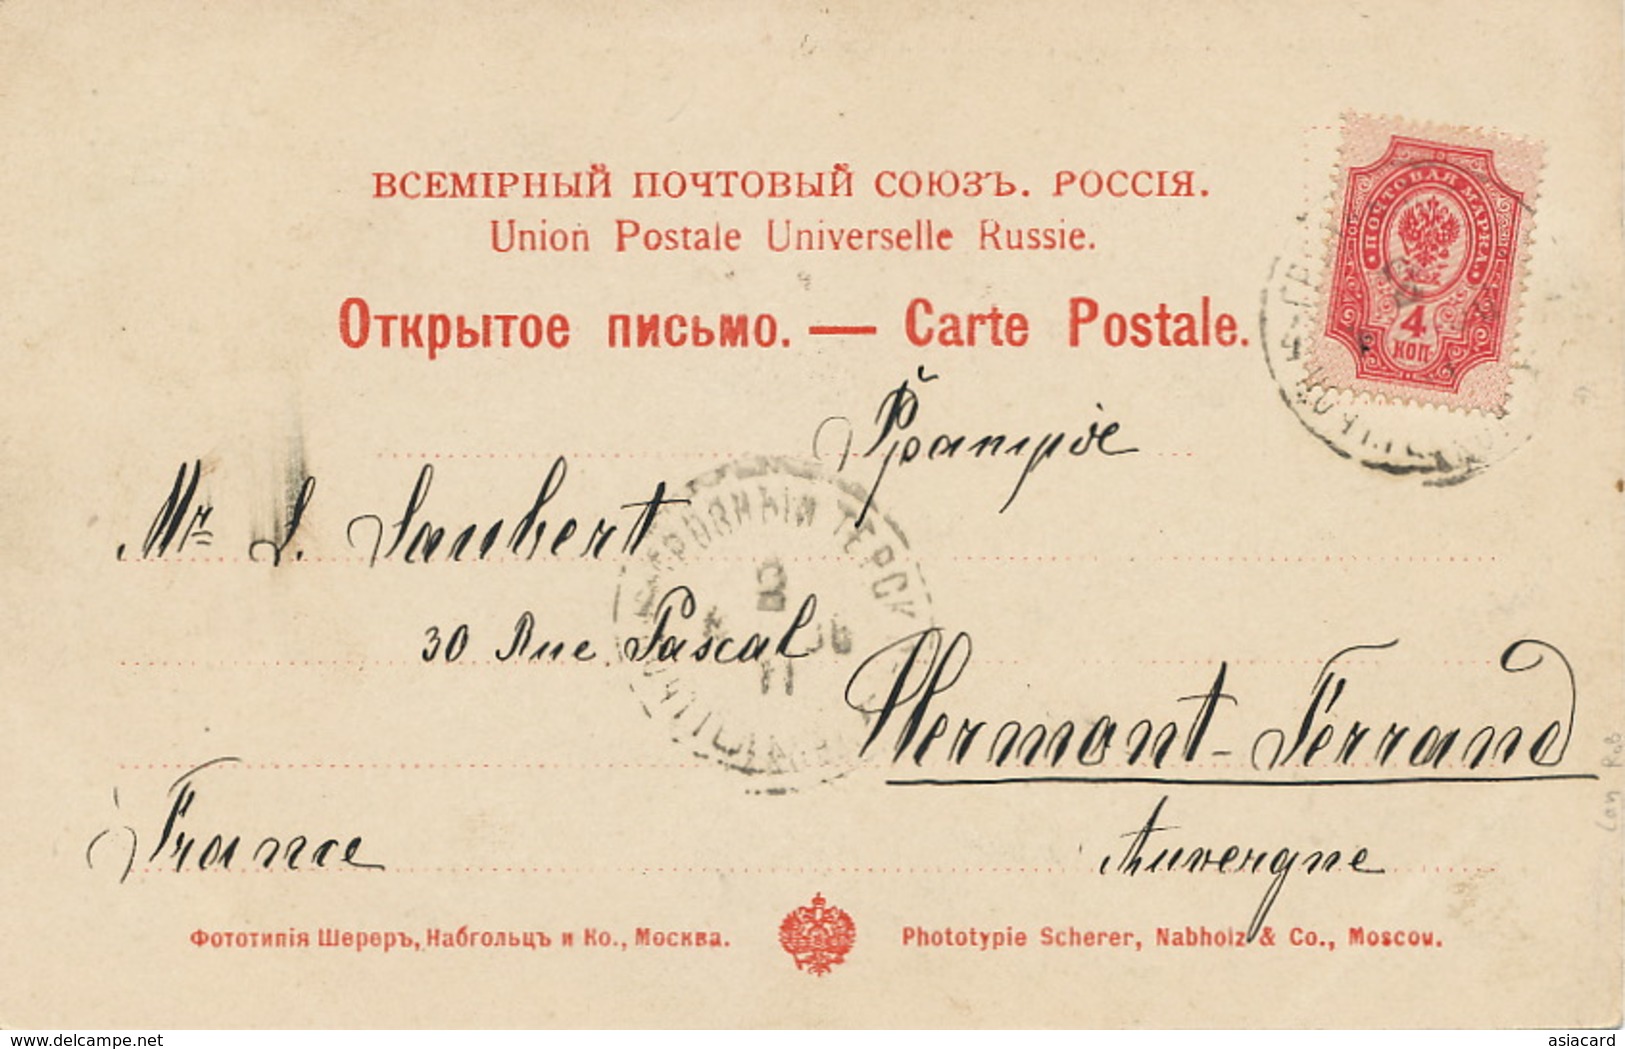 ВСЕМІРНЫЙ ПОЧТОВЫЙ СОЮЗЪ. РОССІЯ.
Union Postale Universelle Russie.
Открытое письмо. — Carte Postale.
ПОЧТОВАЯ МАРКА
4
КОП.
Франція
Mr L. Saubert
30 Rue Pascal
Clermont-Ferrand
France
Auvergne
Фототипія Шереръ, Набгольцъ и Ко., Москва.
Phototypie Scherer, Nabholz & Co., Moscou.
www.delcampe.net
asiacard